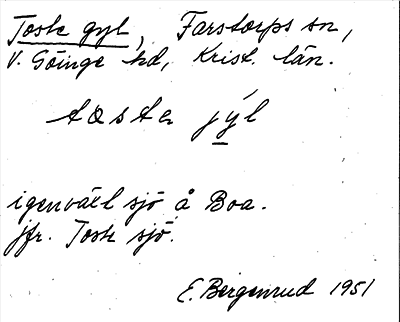 Toste gyl, Farstorps sn,
V. Göinge hd, Krist. län.
tɑstɛ jýl
igenväxl sjö å Boa.
jfr. Toste sjö.
E. Bergenrud 1951